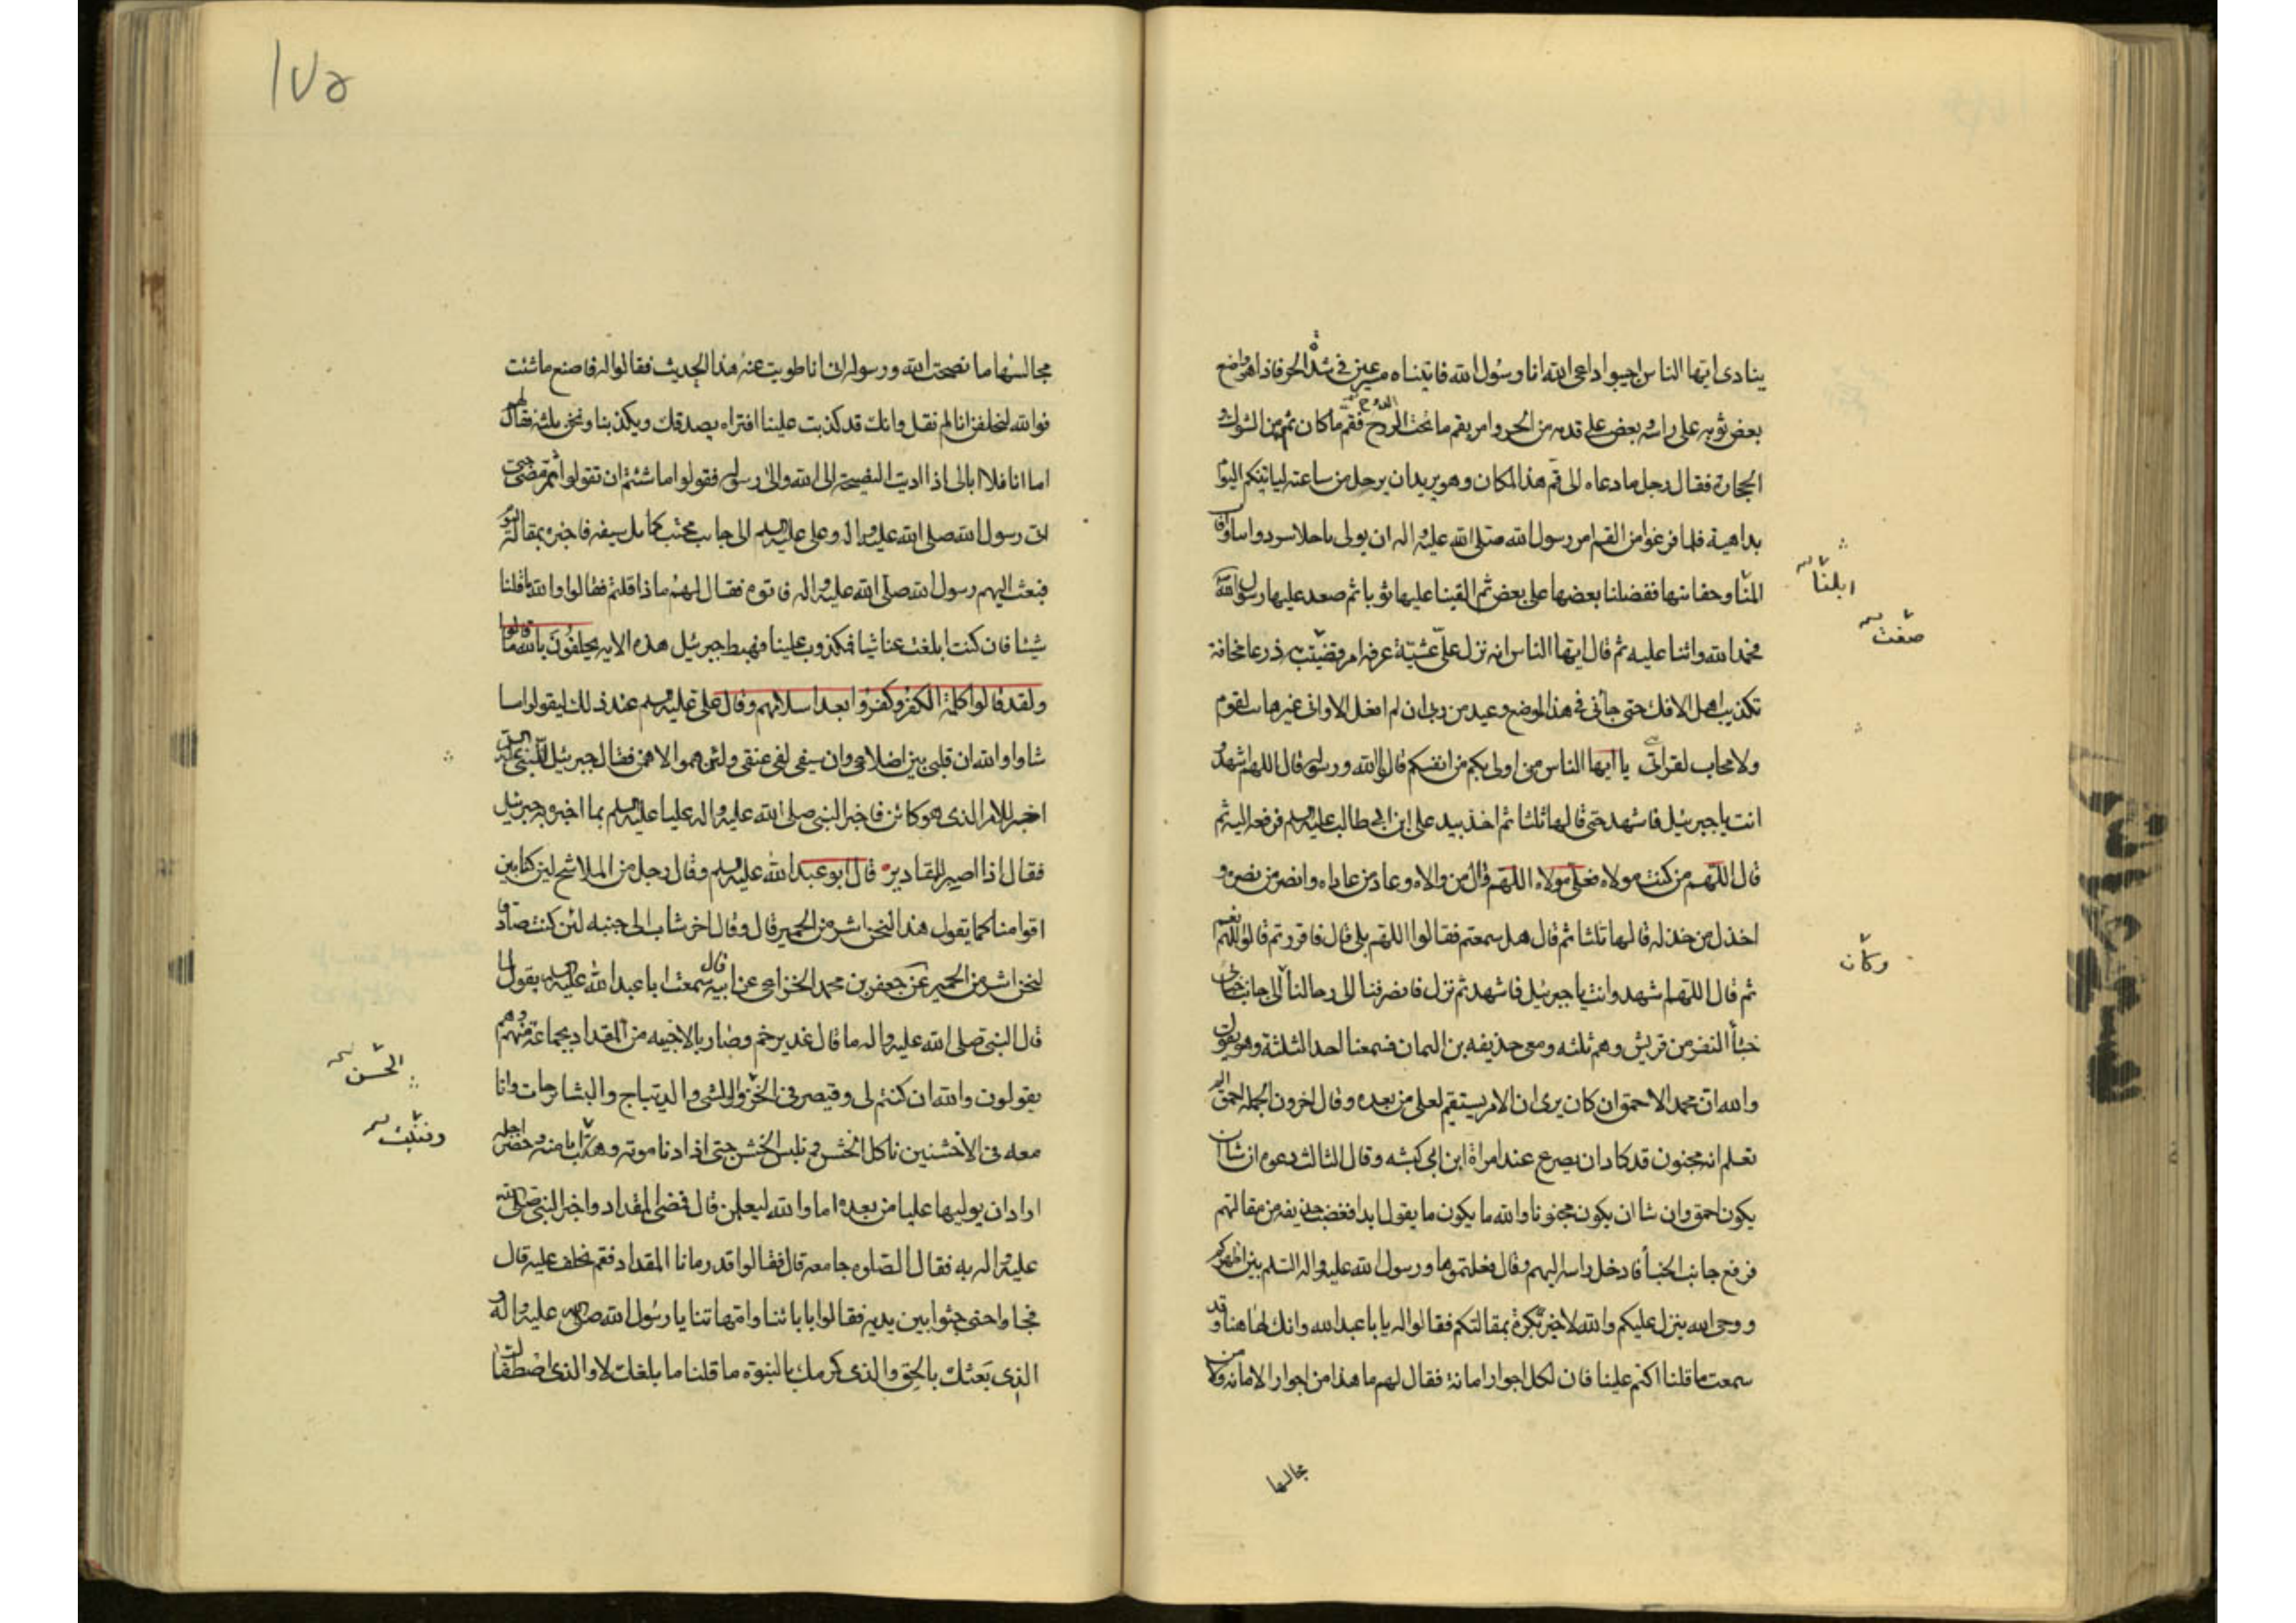 ينادى ايها الناس اجيبوا داعى الله انا رسول الله فاتيناه مسرعين فى شدة الحر فاذا هو واضع
بعض ثوبه على راسه وبعض على قدميه من الحر وامر بقم ما تحت الدوح فقم ما كان ثم من الشوك و
الحجارة فقال رجل ما دعاه الى قم هذا المكان وهو يريد ان يرحل من ساعته لياتينكم اليوم
بداهية فلما فرغوا من القم امر رسول الله صلى الله عليه واله ان يولى باحلاس دوابنا و
المنا وحقائبها ففضلنا بعضها على بعض ثم القينا عليها ثوبا ثم صعد عليها رسول الله
فحمد الله واثنا عليه ثم قال ايها الناس انه نزل على عشية عرفه امر وضقت به ذرعا مخافة
تكذيب اهل الافك حتى جائنى فى هذا الموضع وعيد من ربى ان لم افعل الا وانى غير هائب لقوم
ولا محاب لقرابتى يا ايها الناس من اولى بكم من انفسكم قالوا الله ورسوله قال اللهم اشهد و
انت يا جبرئيل فاشهد حتى قالها ثلثا ثم اخذ بيد على ابن ابى طالب عليه السلم فرفعه اليه ثم
قال اللهم من كنت مولاه فعلى مولاه اللهم وال من والاه وعاد من عاداه وانصر من نصره و
اخذل من خذله قالها ثلثا ثم قال هل سمعتم فقالوا اللهم بلى قال فاقررتم قالوا اللهم نعم
ثم قال اللهم اشهد وانت يا جبرئيل فاشهد ثم نزل فانصرفنا الى رحالنا الى جانب خبائى
خبأ النفر من قريش وهم ثلثه ومعى حذيفه بن اليمان فسمعنا احد الثلثة وهو يقول
والله ان محمد الاحمق ان كان يرى ان الامر يستقيم لعلى من بعده وقال اخرون اتجعله احمق الم
تعلم انه مجنون قد كاد ان يصرع عند امراة ابن ابى كبشه وقال الثالث دعوه ان شا ان
يكون احمق وان شا ان يكون مجنونا والله ما يكون ما يقول ابدا فغضب حذيفه من مقالتهم
فرفع جانب الخبأ فادخل راسه اليهم وقال فعلتموها ورسول الله عليه واله السلم بين اظهركم
ووحى الله ينزل عليكم والله لاخبرنه بكرة بمقالتكم فقالوا له يا با عبد الله وانك لهاهنا وقد
سمعت ما قلنا اكتم علينا فان لكل اجوار امانة فقال لهم ما هذا من اجوار الامانه ولا من
مجالسها
ابلنا
ضقت
وكان
١٧٥
مجالسها ما نصحت الله ورسوله ان انا طويت عنه هذا الحديث فقالوا له فاصنع ما شئت
فوالله لنحلفن انا لم نقل وانك قد كذبت علينا افتراه يصدقك ويكذبنا ونحن ثلثه فقال لهم
اما انا فلا ابالى اذا اديت النصيحة الى الله والى رسوله فقولوا ما شئتم ان تقولوا ثم مضى حتى
اتى رسول الله صلى الله عليه واله وعلى عليه السلم الى جانب محتب كمائل سيفه فاخبره بمقالة القوم
فبعث اليهم رسول الله صلى الله عليه واله فاتوه فقال لهم ماذا قلتم فقالوا والله ما قلنا
شيئا فان كنت ابلغت عنا شيا فمكذوب علينا فهبط جبرئيل هذه الايه يحلفون بالله ما قالوا
ولقد قالوا كلمة الكفر وكفروا بعد اسلامهم وقال على عليه السلم عند ذلك ليقولوا ما
شاوا والله ان قلبى بين اضلاعى وان سيفى لفى عنقى ولئن هموا لاهمن فقال جبرئيل للنبى عليه السلم
اخبر للامر الذى هو كائن فاخبر النبى صلى الله عليه واله عليا عليه السلم بما اخبره به جبرئيل
فقال اذا اصبر للمقادير قال ابو عبد الله عليه السلم وقال رجل من الملا شيخ لئن كنا بين
اقوامنا كما يقول هذا لنحن اشر من الحمير قال وقال اخر شاب الى جنبه لئن كنت صادقا
لنحن اشر من الحمير عن جعفر بن محمد الخزاعى عن ابيه قال سمعت ابا عبد الله عليه السلم يقول لما
قال النبى صلى الله عليه واله ما قال غدير خم وصار بالاخبيه مر المقداد بجماعة منهم وهم
يقولون والله ان كنتم لى وقيصر فى الخز والوشى والديباج والبشاجات وانا
معه فى الاخشنين ناكل الخشن ونلبس الخشن حتى اذا دنا موته و وحضر اجله
اراد ان يوليها عليا من بعده اما والله ليعلمن قال فمضى المقداد واخبر النبى صلى الله
عليه واله به فقال الصلوه جامعه قال فقالوا قد رمانا المقداد فقم نحلف عليه قال
فجاوا حتى جثوا بين يديه فقالوا بابائنا وامهاتنا يا رسول الله صلى الله عليه واله و
الذى بعثك بالحق والذى كرمك بالنبوه ما قلنا ما بلغك لا والذى اصطفاك
الخشن